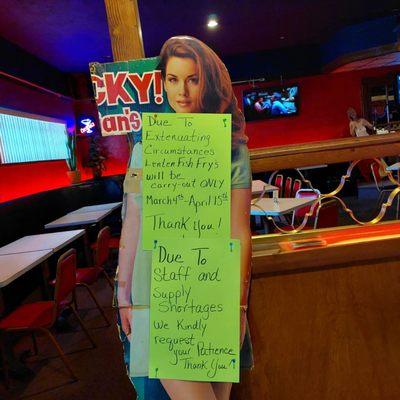 CKY!
an's
Due To
Extenuating
Circumstances
Lenten Fish Frys
will be
carry-out ONLY
March 4th - April 15th
Thank you!
Due To
Staff and
Supply
Shortages
We Kindly
request
your Patience
Thank You!